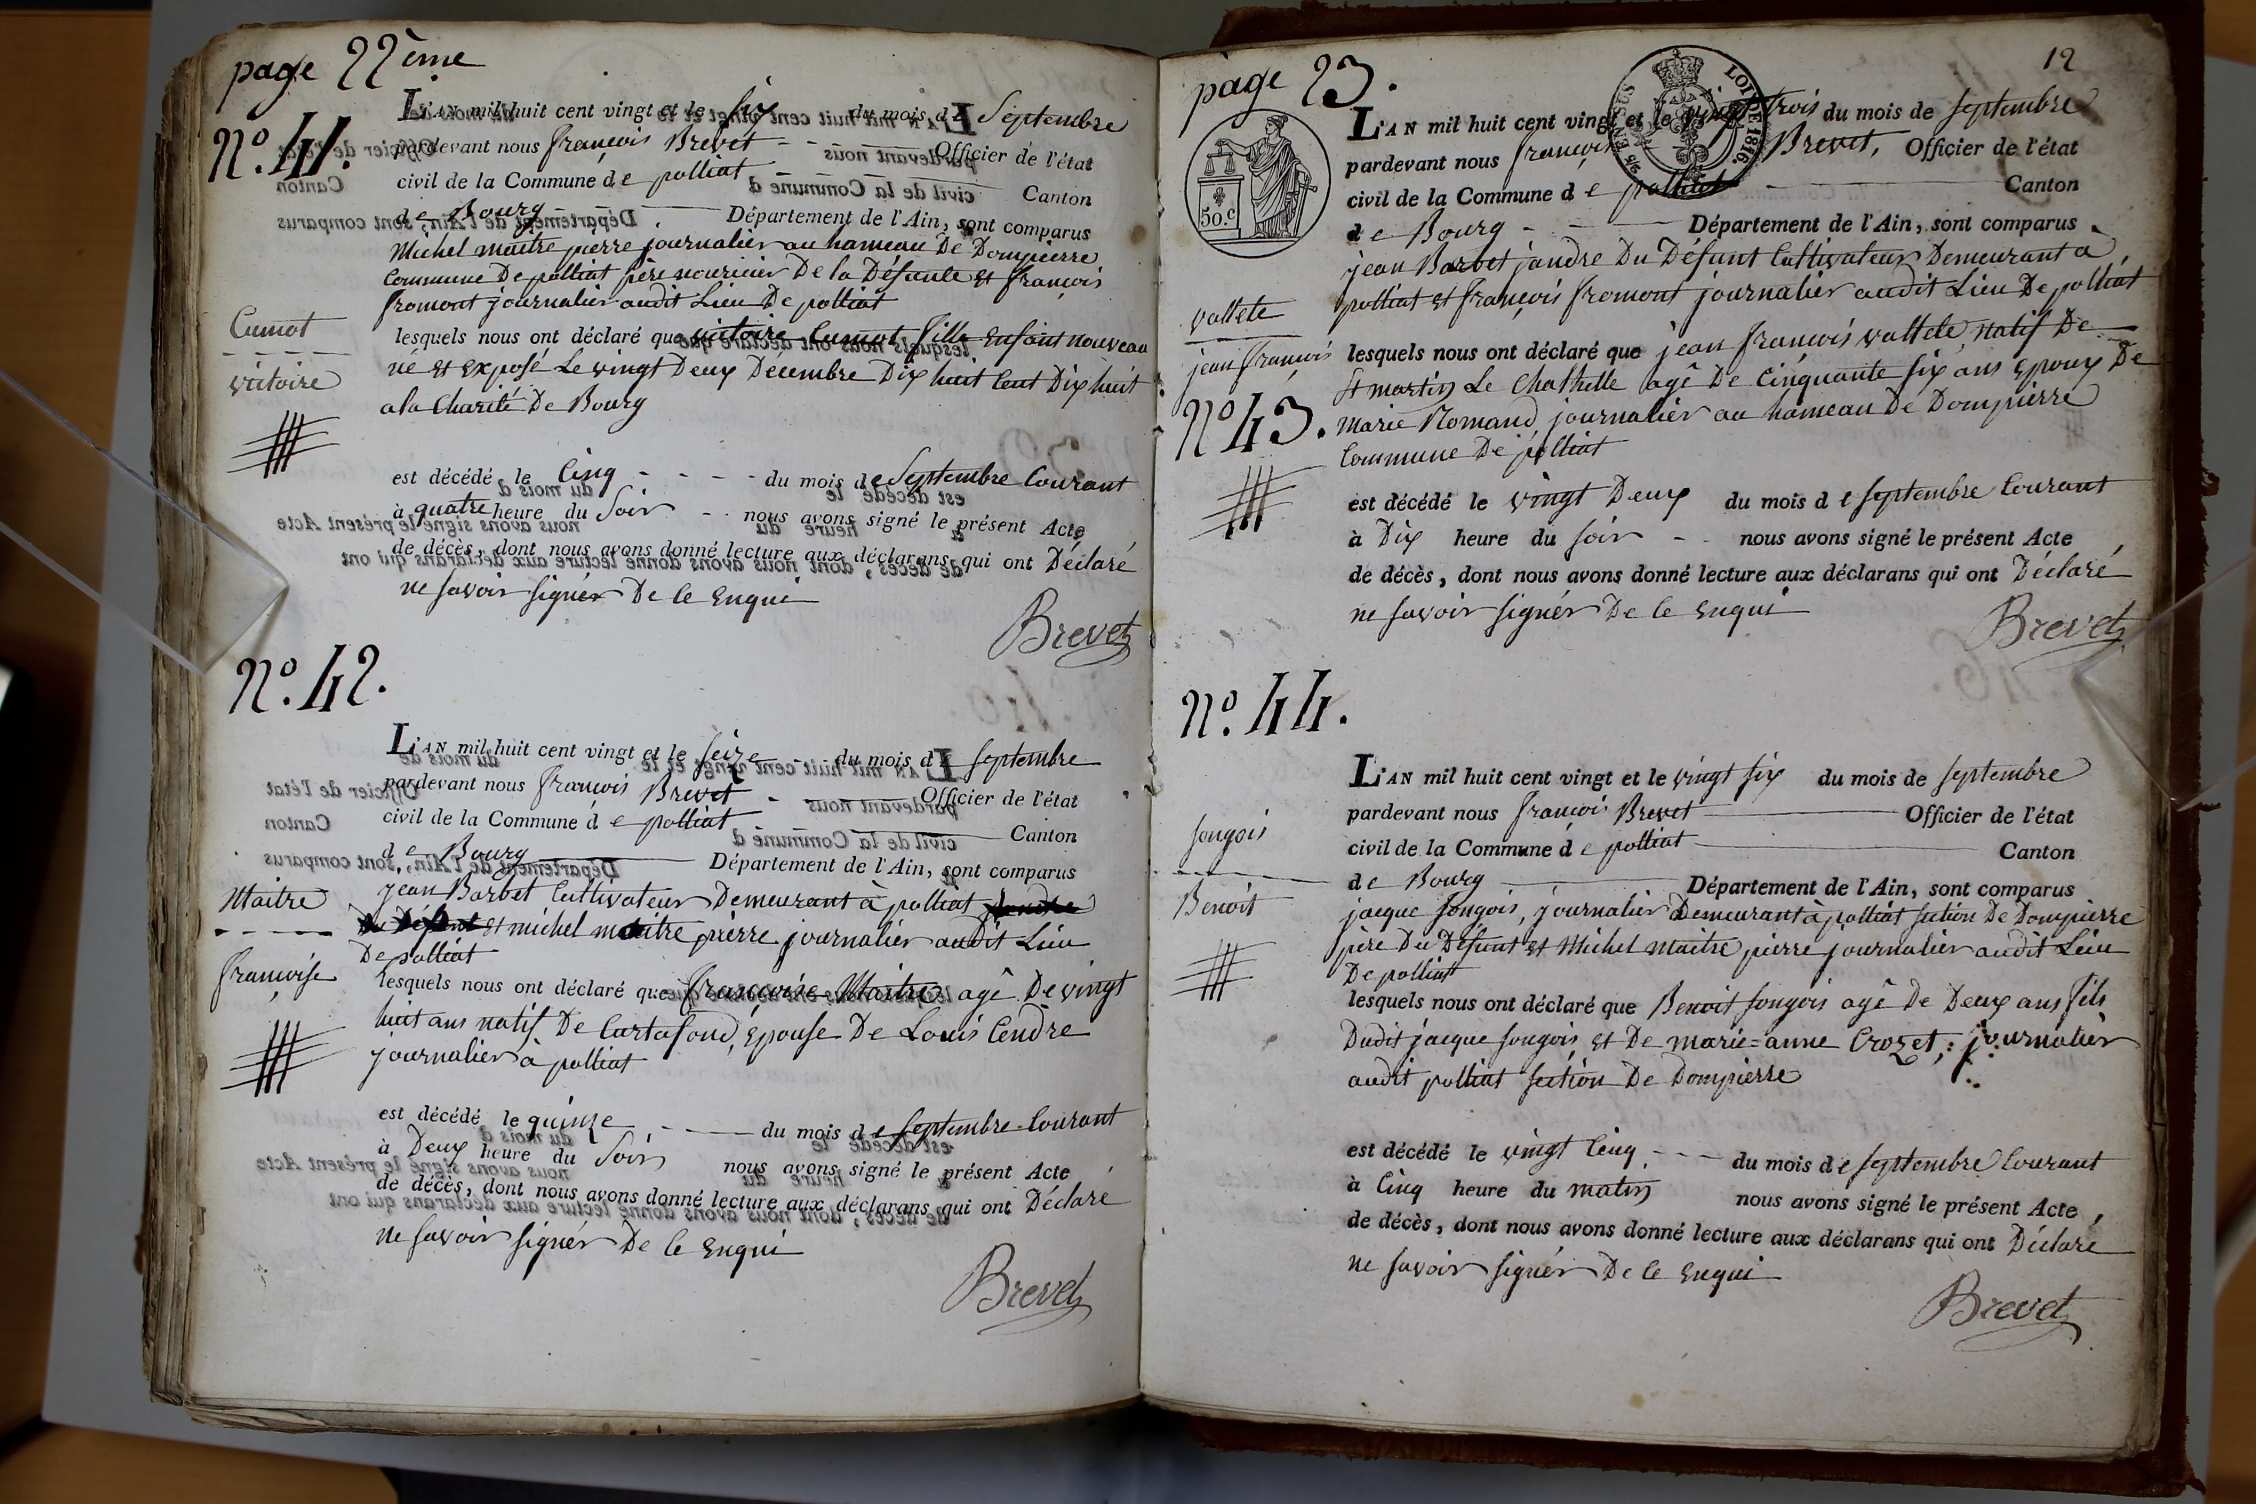 page 22ème
N.° 41.
L'AN mil huit cent vingt et le six du mois de Septembre
pardevant nous françois Brevet Officier de l'état
civil de la Commune de polliat Canton
de Bourg Département de l'Ain, sont comparus
Michel maitre pierre journalier au hameau De Dompierre
Commune De polliat père nouricier De la Défunte et françois
fromont journalier audit Lieu De polliat
Cumot
victoire
lesquels nous ont déclaré que victoire Cumot fille Enfant nouveau
né et Exposé Le vingt Deux Décembre Dix huit Cent Dix huit
a la Charité De Bourg
est décédé le Cinq du mois de Septembre Courant
à quatre heure du Soir nous avons signé le présent Acte
de décès, dont nous avons donné lecture aux déclarans qui ont Déclaré
ne savoir signér De Ce Enqui
Brevet
N.° 42.
L'AN mil huit cent vingt et le seize du mois de septembre
pardevant nous françois Brevet Officier de l'état
civil de la Commune de polliat Canton
de Bourg Département de l'Ain, sont comparus
jean Barbet Cultivateur Demeurant à polliat
et michel maitre pierre journalier audit Lieu
De polliat
Maitre
françoise
lesquels nous ont déclaré que françoise Maitre agê De vingt
huit ans natif De Curtafond, Epouse De Louis Cendre
journalier à polliat
est décédé le quinze du mois de septembre Courant
à Deux heure du Soir nous avons signé le présent Acte
de décès, dont nous avons donné lecture aux déclarans qui ont Déclaré
ne savoir signér De Ce Enqui
Brevet
page 23.
12
LOI DE 1816.
50.c
L'AN mil huit cent vingt et le vingt trois du mois de septembre
pardevant nous françois Brevet, Officier de l'état
civil de la Commune de polliat Canton
de Bourg Département de l'Ain, sont comparus
jean Barbet jandre Du Défunt Cultivateur Demeurant à
polliat et françois fromont journalier audit Lieu De polliat
vallete
jean françois
N° 43.
lesquels nous ont déclaré que jean françois vallete, natif De
St martin Le Chathelle agê De Cinquante six ans Epoux De
marie Romand journalier au hameau De Dompierre
Commune De polliat
est décédé le vingt Deux du mois de septembre Courant
à Dix heure du soir nous avons signé le présent Acte
de décès, dont nous avons donné lecture aux déclarans qui ont Déclaré
ne savoir signér De Ce Enqui
Brevet
N.° 44.
L'AN mil huit cent vingt et le vingt six du mois de septembre
pardevant nous françois Brevet Officier de l'état
civil de la Commune de polliat Canton
de Bourg Département de l'Ain, sont comparus
jacque songois, journalier Demeurant à polliat section De Dompierre
père Du Défunt et Michel maitre pierre journalier audit Lieu
De polliat
songois
Benoit
lesquels nous ont déclaré que Benoit songois agê De Deux ans fils
Dudit jacque songois et De marie=anne Crozet, journalier
audit polliat section De Dompierre
est décédé le vingt Cinq du mois de septembre Courant
à Cinq heure du matin nous avons signé le présent Acte
de décès, dont nous avons donné lecture aux déclarans qui ont Déclaré
ne savoir signér De Ce Enqui
Brevet